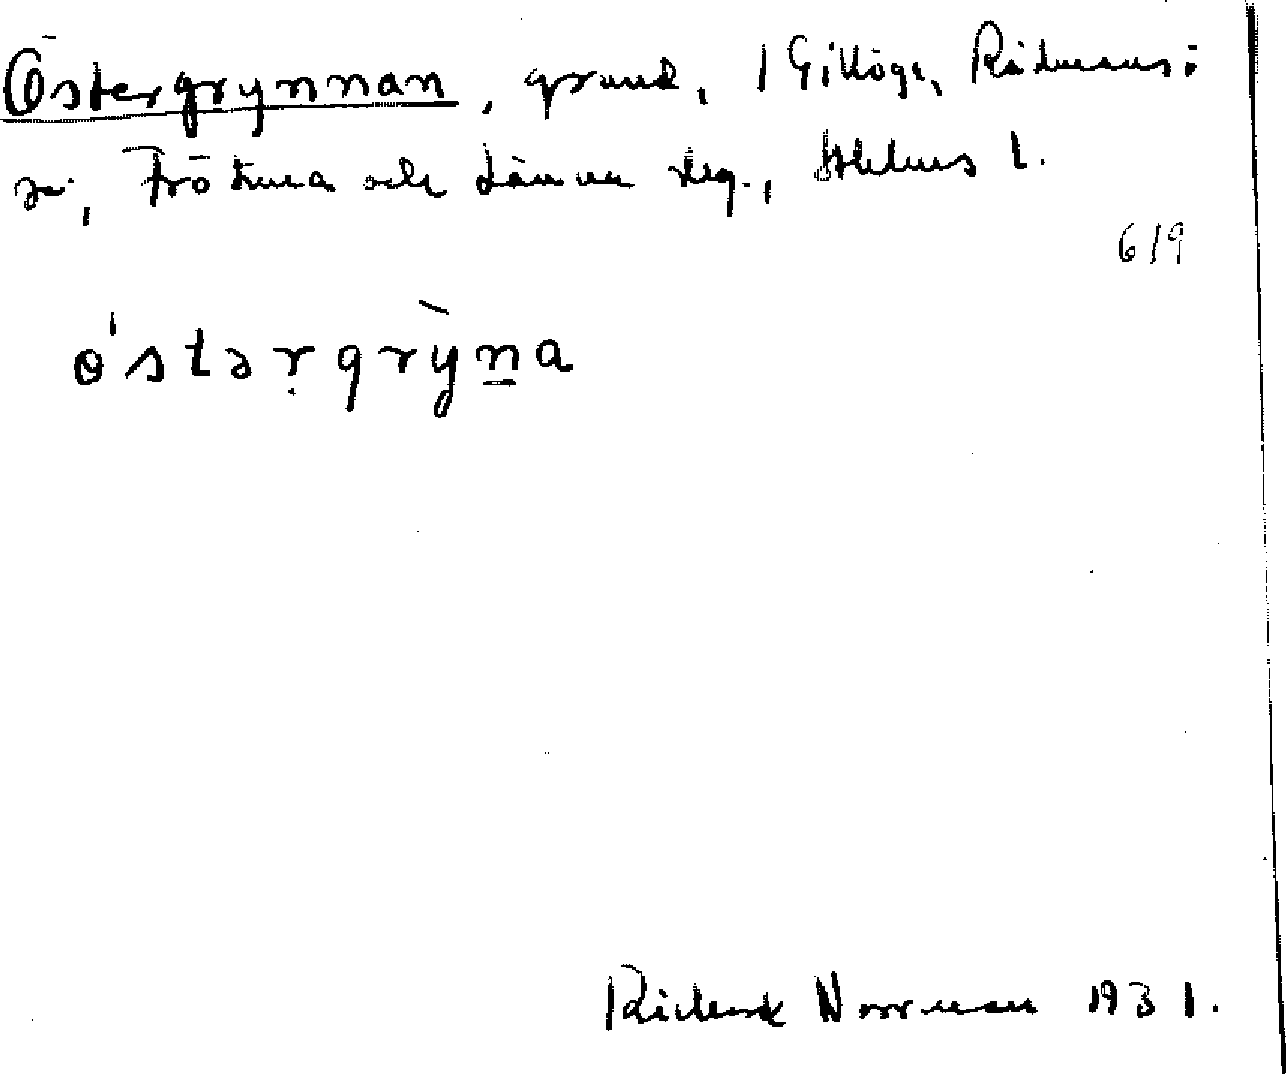 Östergrynnan, grund, i Gillöga, Rådmansö
sn, Frötuna och Länna skg., Sthlms l.
6/9
östərgrỳna
Richard Norrman 1931.